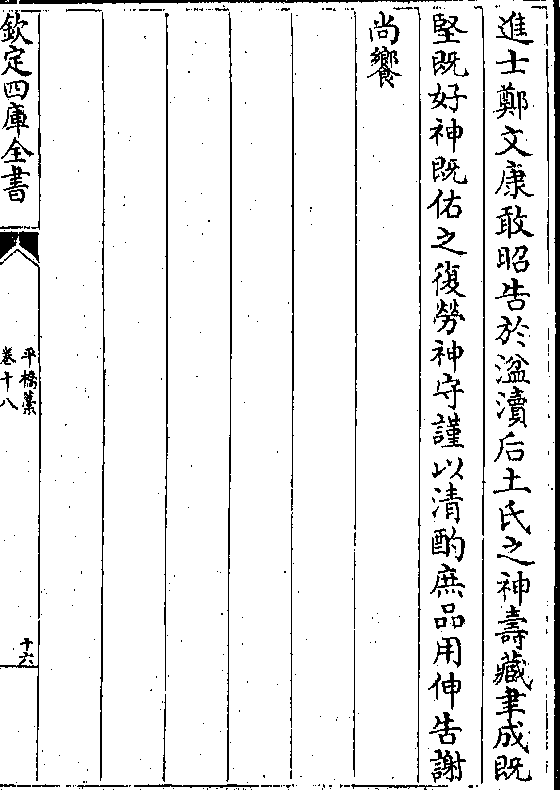 進士鄭文康敢昭告於湓瀆后土氏之神壽藏聿成既
堅既好神既佑之復勞神守謹以清酌庶品用伸告謝
尚饗
欽定四庫全書
平橋藁
卷十八
十六